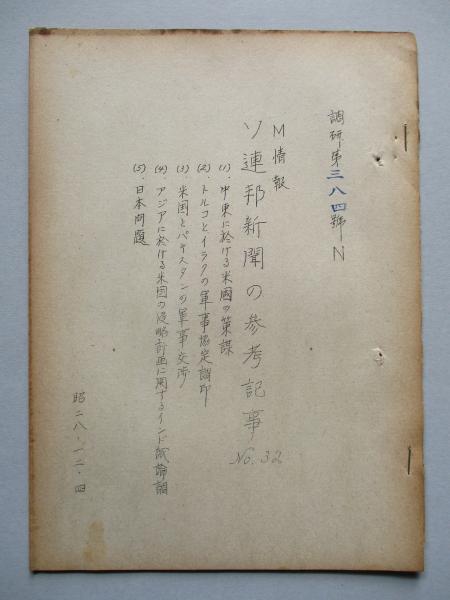 調研第三八四號N
M情報
ソ連邦新聞の参考記事 No.32
(1)、中東に於ける米國の策謀
(2)、トルコとイラクの軍事協定調印
(3)、米国とパキスタンの軍事交渉
(4)、アジアに於ける米国の侵略計画に関するインド紙論調
(5)、日本問題
昭二八・一二・四